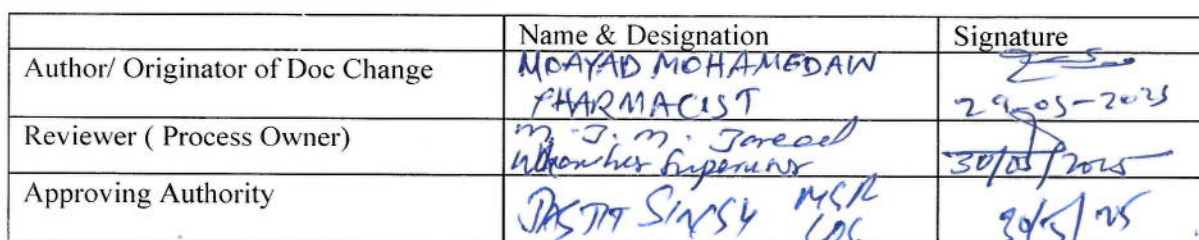 Name & Designation Signature
Author/ Originator of Doc Change MOAYAD MOHAMEDAW
PHARMACIST 29-05-2025
Reviewer ( Process Owner) M. J. M.
30/05/2025
Approving Authority SINGH MGR
30/5/25